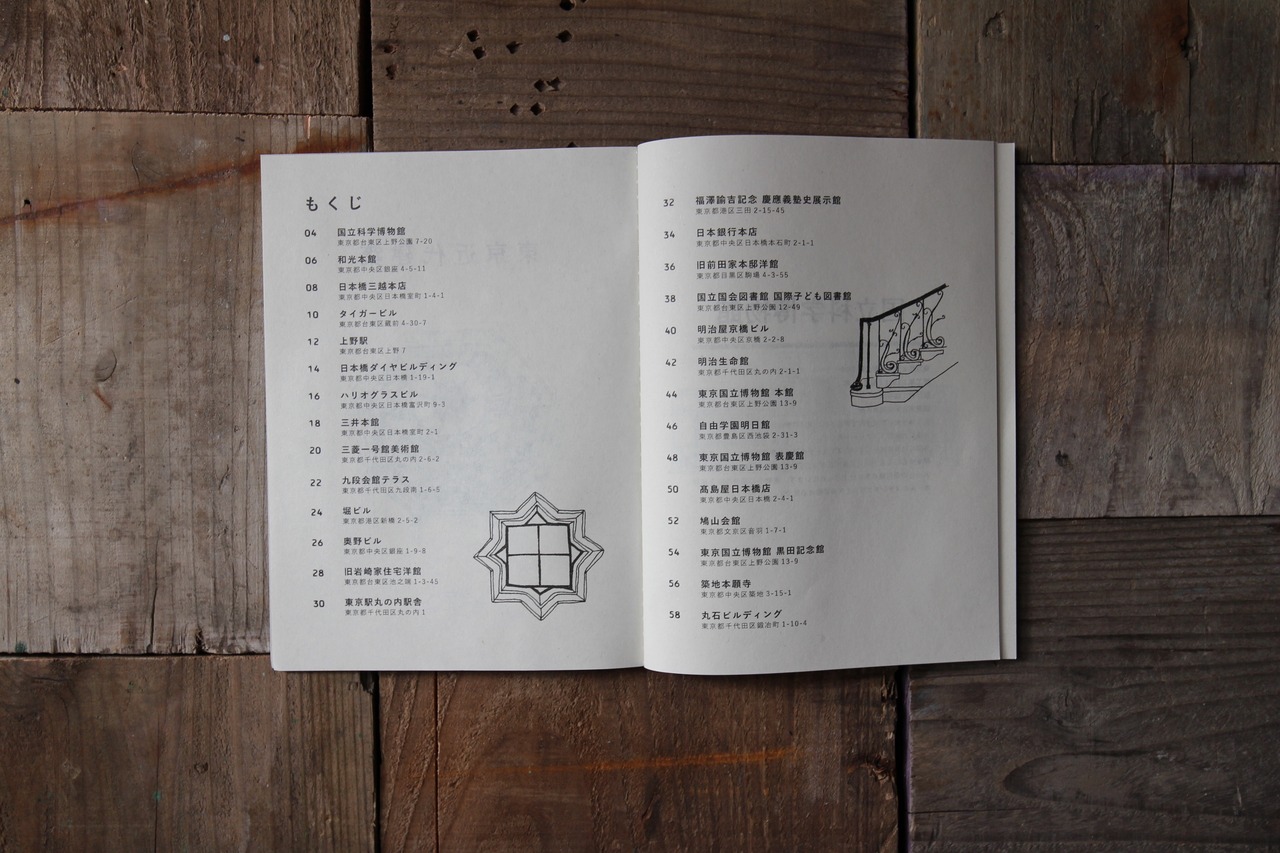 もくじ
04 国立科学博物館
東京都台東区上野公園 7-20
06 和光本館
東京都中央区銀座 4-5-11
08 日本橋三越本店
東京都中央区日本橋室町 1-4-1
10 タイガービル
東京都台東区蔵前 4-30-7
12 上野駅
東京都台東区上野 7
14 日本橋ダイヤビルディング
東京都中央区日本橋 1-19-1
16 ハリオグラスビル
東京都中央区日本橋富沢町 9-3
18 三井本館
東京都中央区日本橋室町 2-1
20 三菱一号館美術館
東京都千代田区丸の内 2-6-2
22 九段会館テラス
東京都千代田区九段南 1-6-5
24 堀ビル
東京都港区新橋 2-5-2
26 奥野ビル
東京都中央区銀座 1-9-8
28 旧岩崎家住宅洋館
東京都台東区池之端 1-3-45
30 東京駅丸の内駅舎
東京都千代田区丸の内 1
32 福澤諭吉記念 慶應義塾史展示館
東京都港区三田 2-15-45
34 日本銀行本店
東京都中央区日本橋本石町 2-1-1
36 旧前田家本邸洋館
東京都目黒区駒場 4-3-55
38 国立国会図書館 国際子ども図書館
東京都台東区上野公園 12-49
40 明治屋京橋ビル
東京都中央区京橋 2-2-8
42 明治生命館
東京都千代田区丸の内 2-1-1
44 東京国立博物館 本館
東京都台東区上野公園 13-9
46 自由学園明日館
東京都豊島区西池袋 2-31-3
48 東京国立博物館 表慶館
東京都台東区上野公園 13-9
50 髙島屋日本橋店
東京都中央区日本橋 2-4-1
52 鳩山会館
東京都文京区音羽 1-7-1
54 東京国立博物館 黒田記念館
東京都台東区上野公園 13-9
56 築地本願寺
東京都中央区築地 3-15-1
58 丸石ビルディング
東京都千代田区鍛冶町 1-10-4